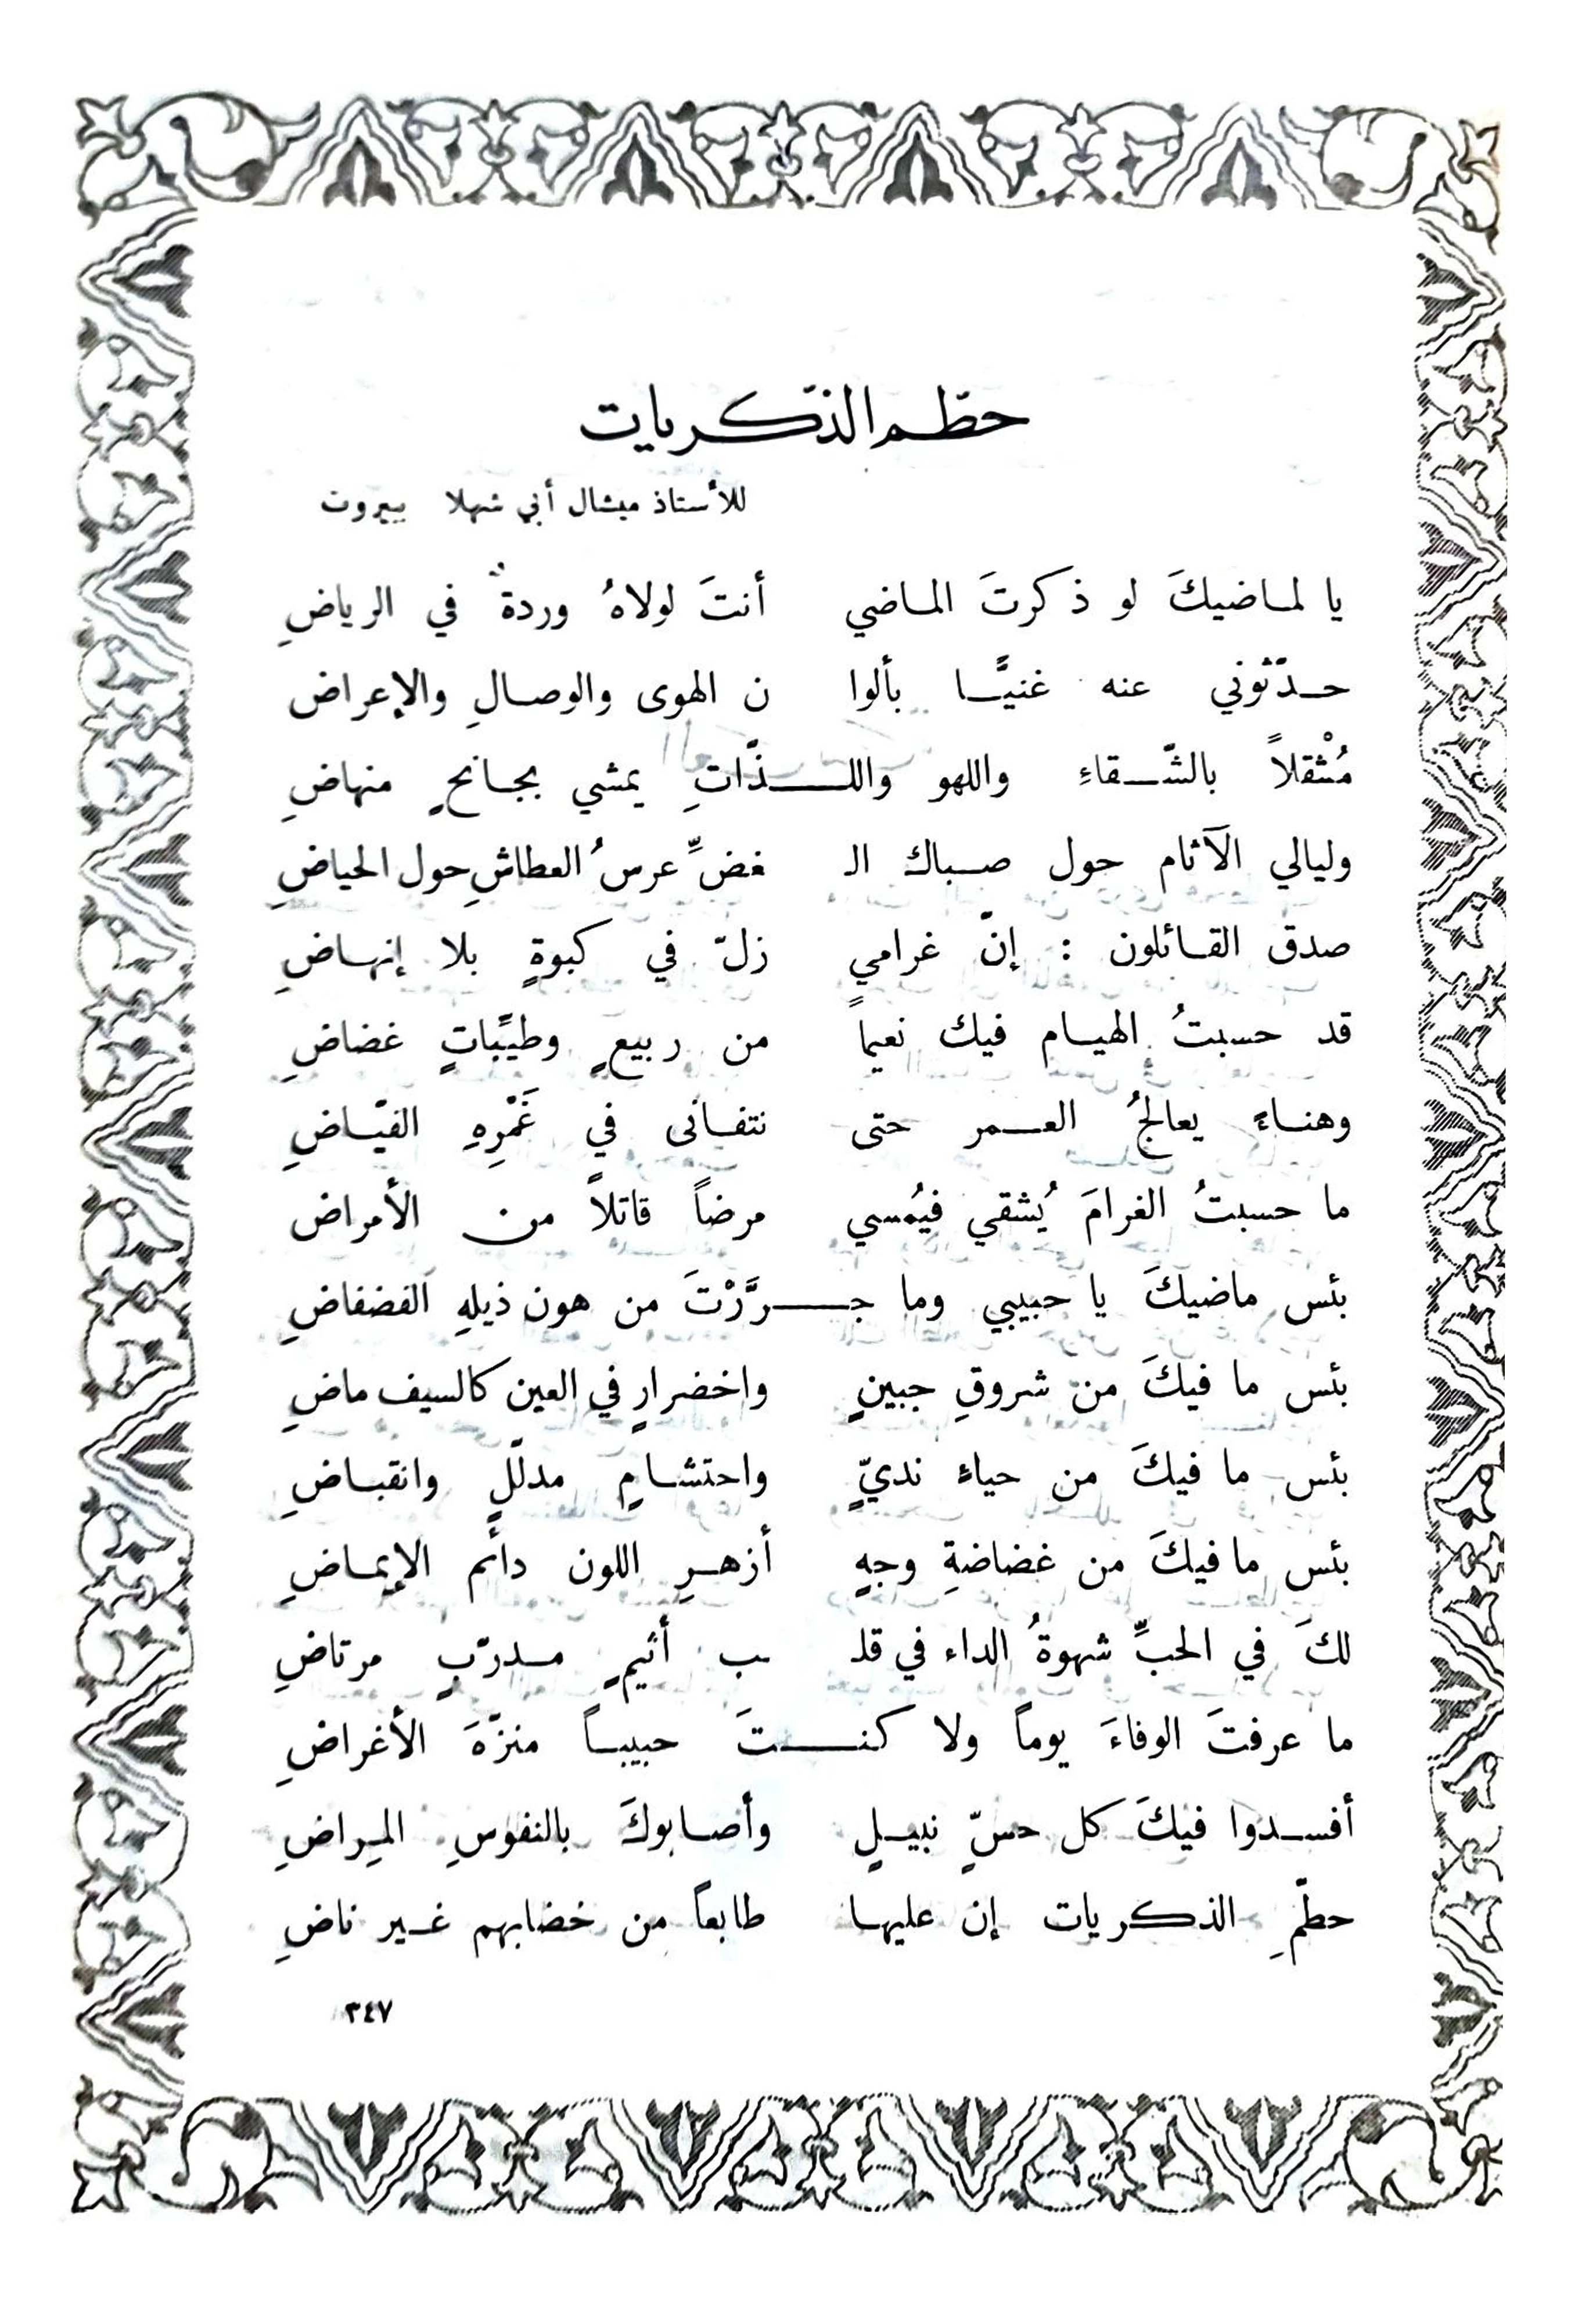 حطّم الذّكريات
للأستاذ ميشال أبي شهلا بيروت
يا لماضيكَ لو ذكرتَ الماضي أنتَ لولاهُ وردةٌ في الرياضِ
حدّثوني عنه غنيًّا بألوا ن الهوى والوصالِ والإعراض
مُثْقلاً بالشّقاءِ واللهو واللذّاتِ يمشي بجانحٍ منهاضِ
وليالي الآثام حول صباك الـ غضِّ عرسُ العطاشِ حول الحياضِ
صدق القائلون : إنّ غرامي زلّ في كبوةٍ بلا إنهاضِ
قد حسبتُ الهيام فيك نعيماً من ربيعٍ وطيّباتٍ غضاضِ
وهناءً يعالجُ العمر حتى نتفانى في غَمْرِهِ الفيّاضِ
ما حسبتُ الغرامَ يُشقي فيُمسي مرضاً قاتلاً من الأمراض
بئس ماضيكَ يا حبيبي وما جرَّرْتَ من هون ذيلهِ الفضفاضِ
بئس ما فيكَ من شروقِ جبينٍ واخضرارٍ في العين كالسيف ماضِ
بئس ما فيكَ من حياءٍ نديٍّ واحتشامٍ مدلّلٍ وانقباضِ
بئس ما فيكَ من غضاضةِ وجهٍ أزهرِ اللون دائم الإيماضِ
لكَ في الحبِّ شهوةُ الداء في قلـ ـب أثيمٍ مدرّبٍ مرتاضِ
ما عرفتَ الوفاءَ يوماً ولا كنتَ حبيباً منزّهَ الأغراضِ
أفسدوا فيكَ كل حسٍّ نبيلٍ وأصابوكَ بالنفوسِ المِراضِ
حطّمِ الذكريات إن عليها طابعاً من خضابهم غير ناضِ
٣٤٧